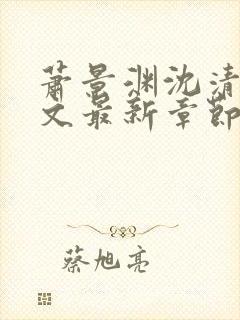 萧景渊沈清
文最新章節
蔡旭亮